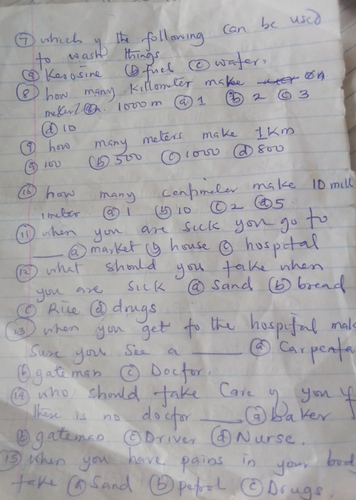 ⑦ which of the following can be used
to wash things
ⓐ Kerosine ⓑ fuel ⓒ water.
⑧ how many killometer make on
meter/ 1000m ⓐ 1 ⓑ 2 ⓒ 3
ⓓ 10
⑨ how many meters make 1Km
ⓐ 100 ⓑ 500 ⓒ 1000 ⓓ 800
⑩ how many centimeter make 10 mill
imeter ⓐ 1 ⓑ 10 ⓒ 2 ⓓ 5
⑪ when you are sick you go to
___ ⓐ market ⓑ house ⓒ hospital
⑫ what should you take when
you are sick ⓐ Sand ⓑ bread
ⓒ Rice ⓓ drugs
⑬ when you get to the hospital make
Sure you See a ___ ⓐ Carpenta
ⓑ gateman ⓒ Doctor.
⑭ who should take Care of you if
there is no doctor ___ ⓐ baker
ⓑ gateman ⓒ Driver ⓓ Nurse.
⑮ when you have pains in your bod
take ⓐ Sand ⓑ petrol ⓒ Drugs.